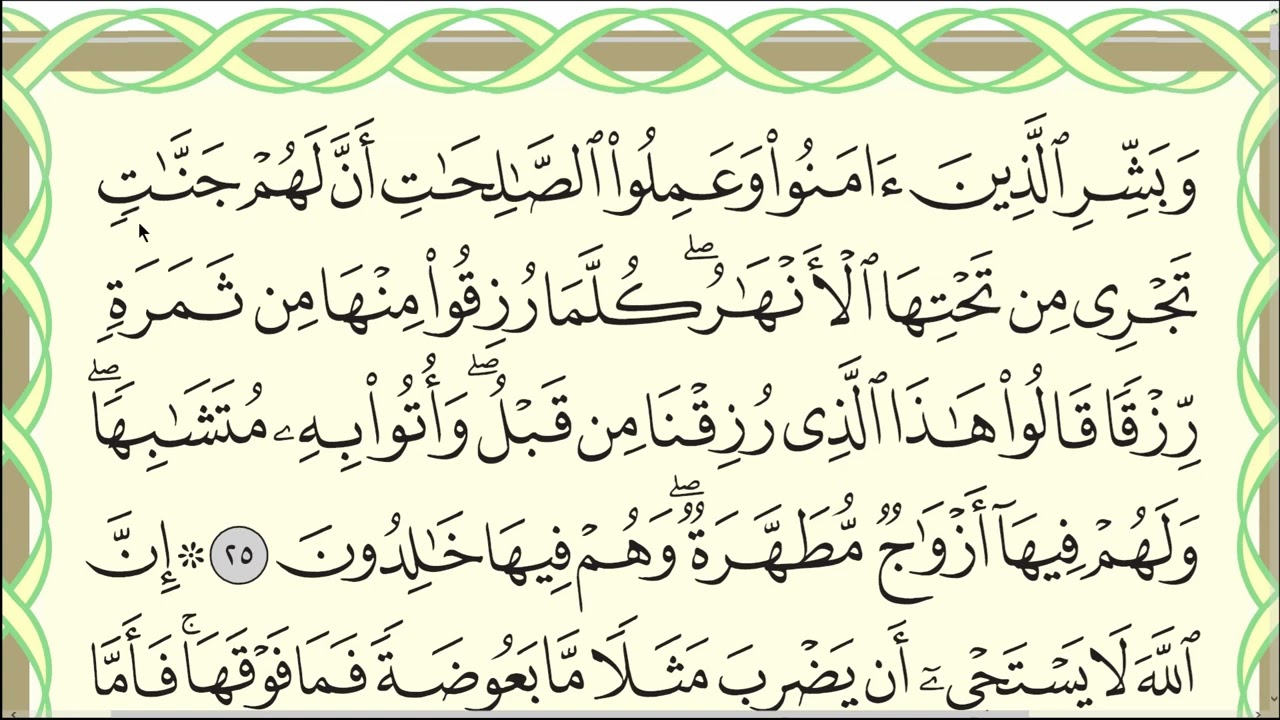 وَبَشِّرِ ٱلَّذِينَ ءَامَنُوا۟ وَعَمِلُوا۟ ٱلصَّٰلِحَٰتِ أَنَّ لَهُمْ جَنَّٰتٍ
تَجْرِى مِن تَحْتِهَا ٱلْأَنْهَٰرُ ۖ كُلَّمَا رُزِقُوا۟ مِنْهَا مِن ثَمَرَةٍ
رِّزْقًا قَالُوا۟ هَٰذَا ٱلَّذِى رُزِقْنَا مِن قَبْلُ ۖ وَأُتُوا۟ بِهِۦ مُتَشَٰبِهًا ۖ
وَلَهُمْ فِيهَآ أَزْوَٰجٌ مُّطَهَّرَةٌ ۖ وَهُمْ فِيهَا خَٰلِدُونَ ٢٥ ۞ إِنَّ
ٱللَّهَ لَا يَسْتَحْىِۦٓ أَن يَضْرِبَ مَثَلًا مَّا بَعُوضَةً فَمَا فَوْقَهَا ۚ فَأَمَّا